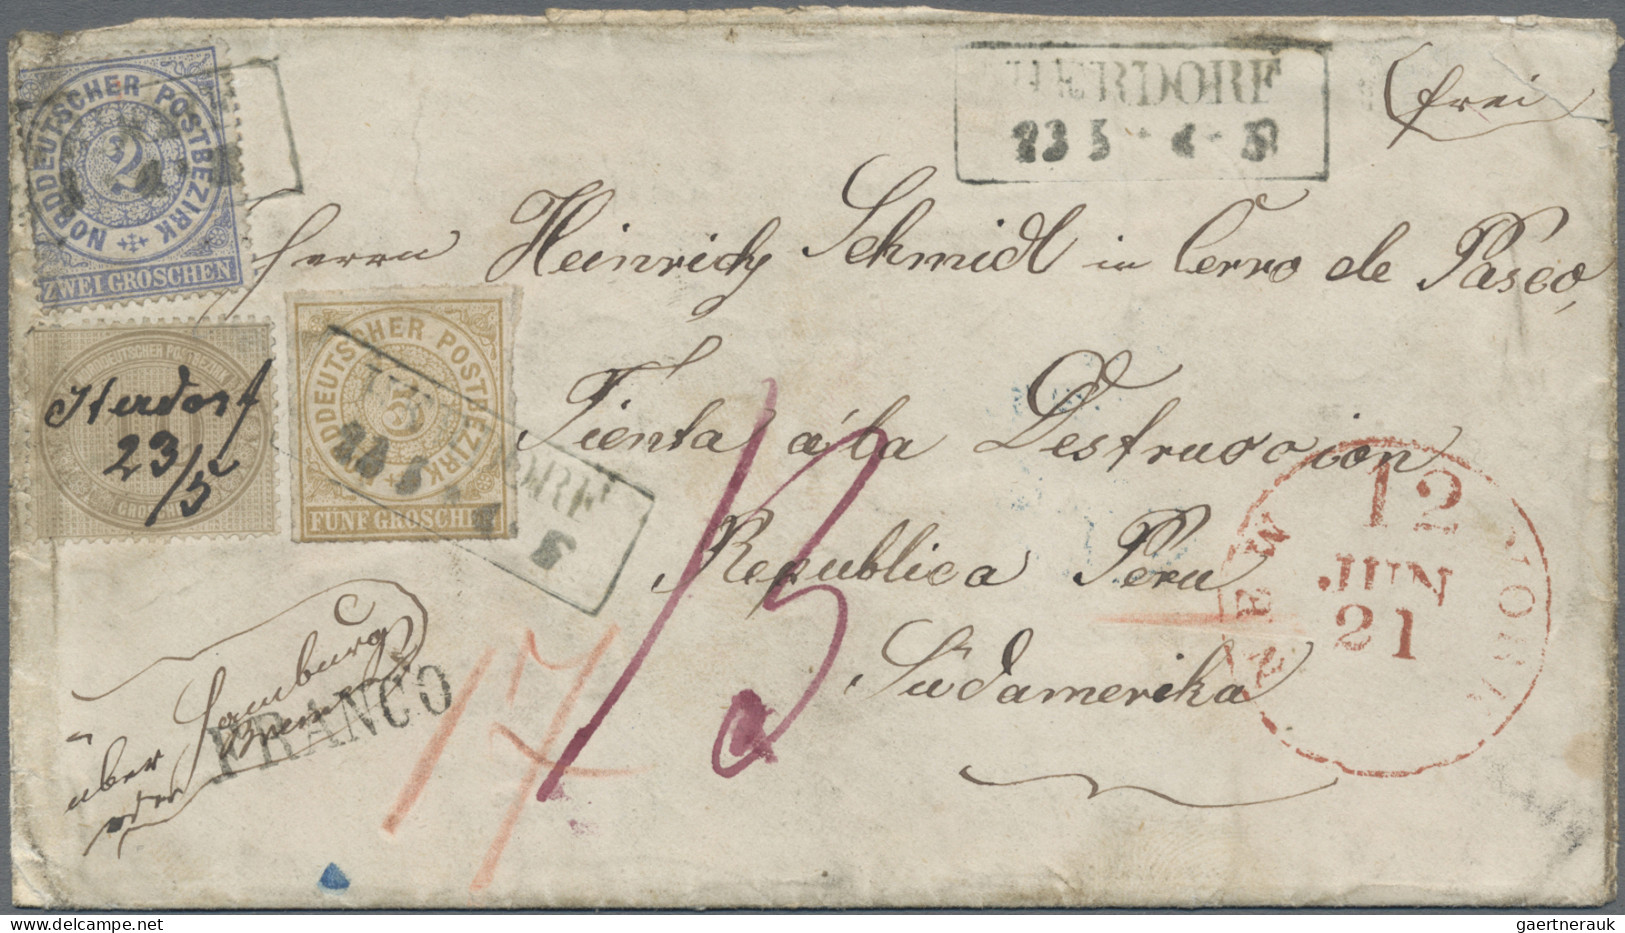 NORDDEUTSCHER POSTBEZIRK
2
ZWEI GROSCHEN
ERDORF
23 5
(frei)
Herrn Heinrich Schmidt in Cerro de Pasco,
NORDDEUTSCHER POSTBEZIRK
Herdorf
23/5
GROSCHEN
NORDDEUTSCHER POSTBEZIRK
5
FÜNF GROSCHEN
Tienta á la Destruccion
Republica Peru
Südamerika
NEW YORK
12
JUN
21
über Hamburg
oder Bremen
FRANCO
17
13
delcampe.net
gaertnerauk